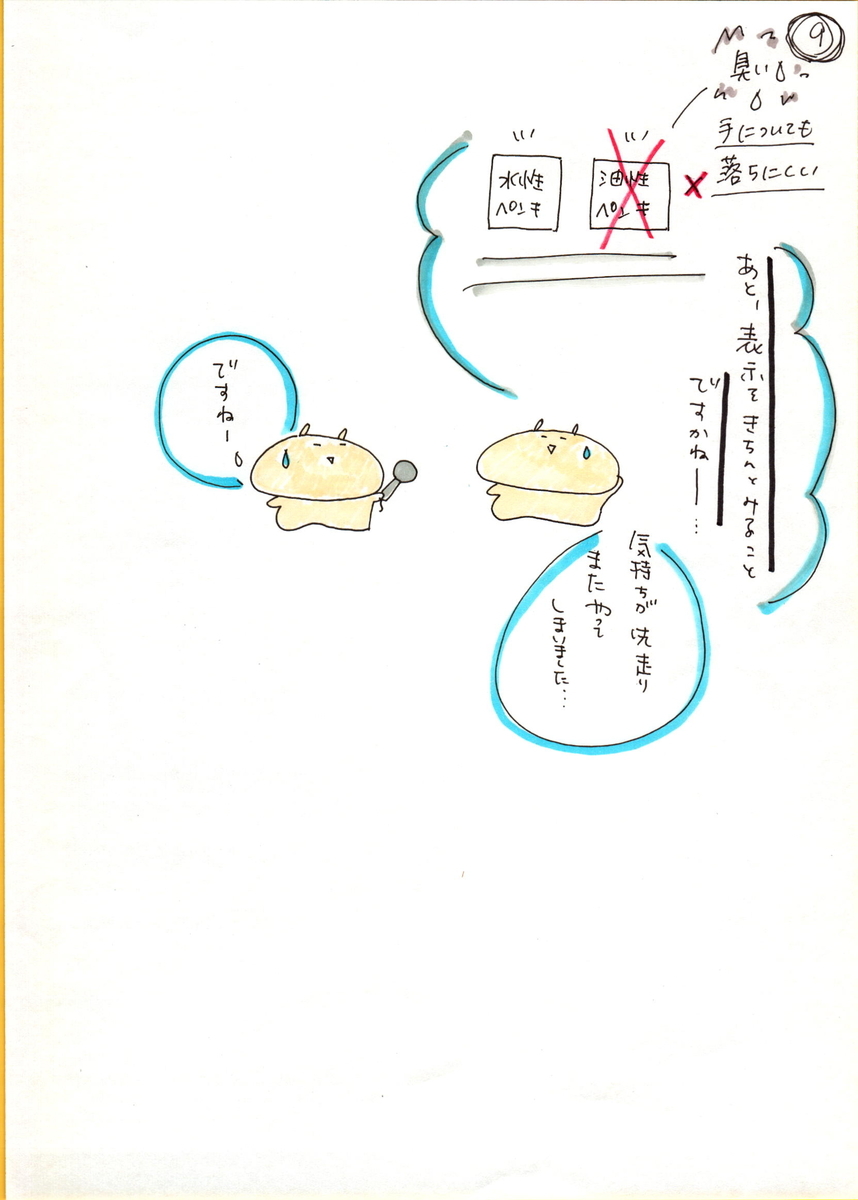 9
臭い
手についても
落ちにくい
水性
ペンキ
油性
ペンキ
あと、表示をきちんとみること
ですかねー…
ですねー。
気持ちが先走り
またやって
しまいました…